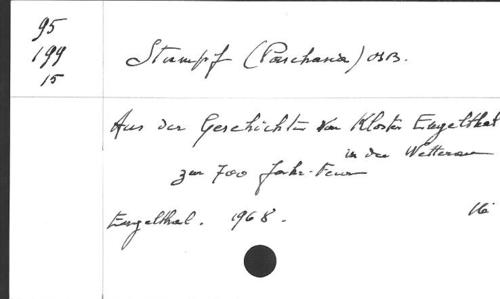 95
199
15
Stumpf (Paschasia) OSB.
Aus der Geschichte von Kloster Engelthal
in der Wetterau
zur 700 Jahr-Feier
Engelthal. 1968.